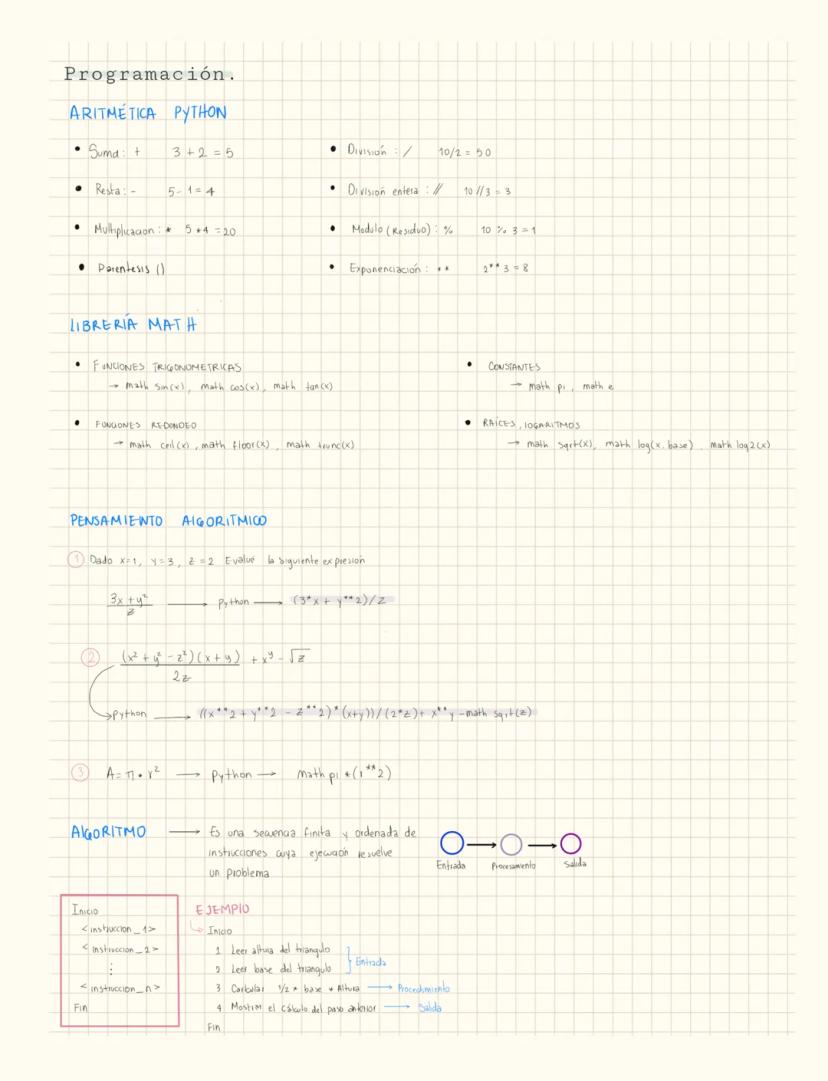 Programación.
ARITMÉTICA PYTHON
• Suma: + 3 + 2 = 5
• División : / 10/2 = 50
• Resta: - 5 - 1 = 4
• División entera : // 10 // 3 = 3
• Multiplicacion : * 5 * 4 = 20
• Modulo (Residuo) : % 10 % 3 = 1
• Parentesis ()
• Exponenciación : ** 2**3 = 8
LIBRERÍA MATH
• FUNCIONES TRIGONOMETRICAS
→ math sin(x), math cos(x), math tan(x)
• CONSTANTES
→ math pi, math e
• FUNCIONES REDONDEO
→ math ceil(x), math floor(x), math trunc(x)
• RAÍCES, LOGARITMOS
→ math sqrt(x), math log(x, base), math log2(x)
PENSAMIENTO ALGORITMICO
① Dado x=1, y=3, z=2 Evalue la siguiente expresión
3x + y²
z
→ Python → (3*x + y**2)/z
② (x² + y² - z²)(x + y) + x^y - √z
2z
→ Python → ((x**2 + y**2 - z**2)*(x+y))/(2*z)+ x**y -math sqrt(z)
③ A = π • r² → Python → Math pi *(r**2)
ALGORITMO → Es una secuencia finita y ordenada de
instrucciones cuya ejecución resuelve
un problema
Entrada → Procesamiento → Salida
Inicio
<instruccion_1>
<instruccion_2>
⋮
<instruccion_n>
Fin
EJEMPLO
Inicio
1 Leer altura del triangulo
2 Leer base del triangulo
} Entrada
3 Calcular 1/2 * base * Altura → Procedimiento
4 Mostrar el cálculo del paso anterior → Salida
Fin